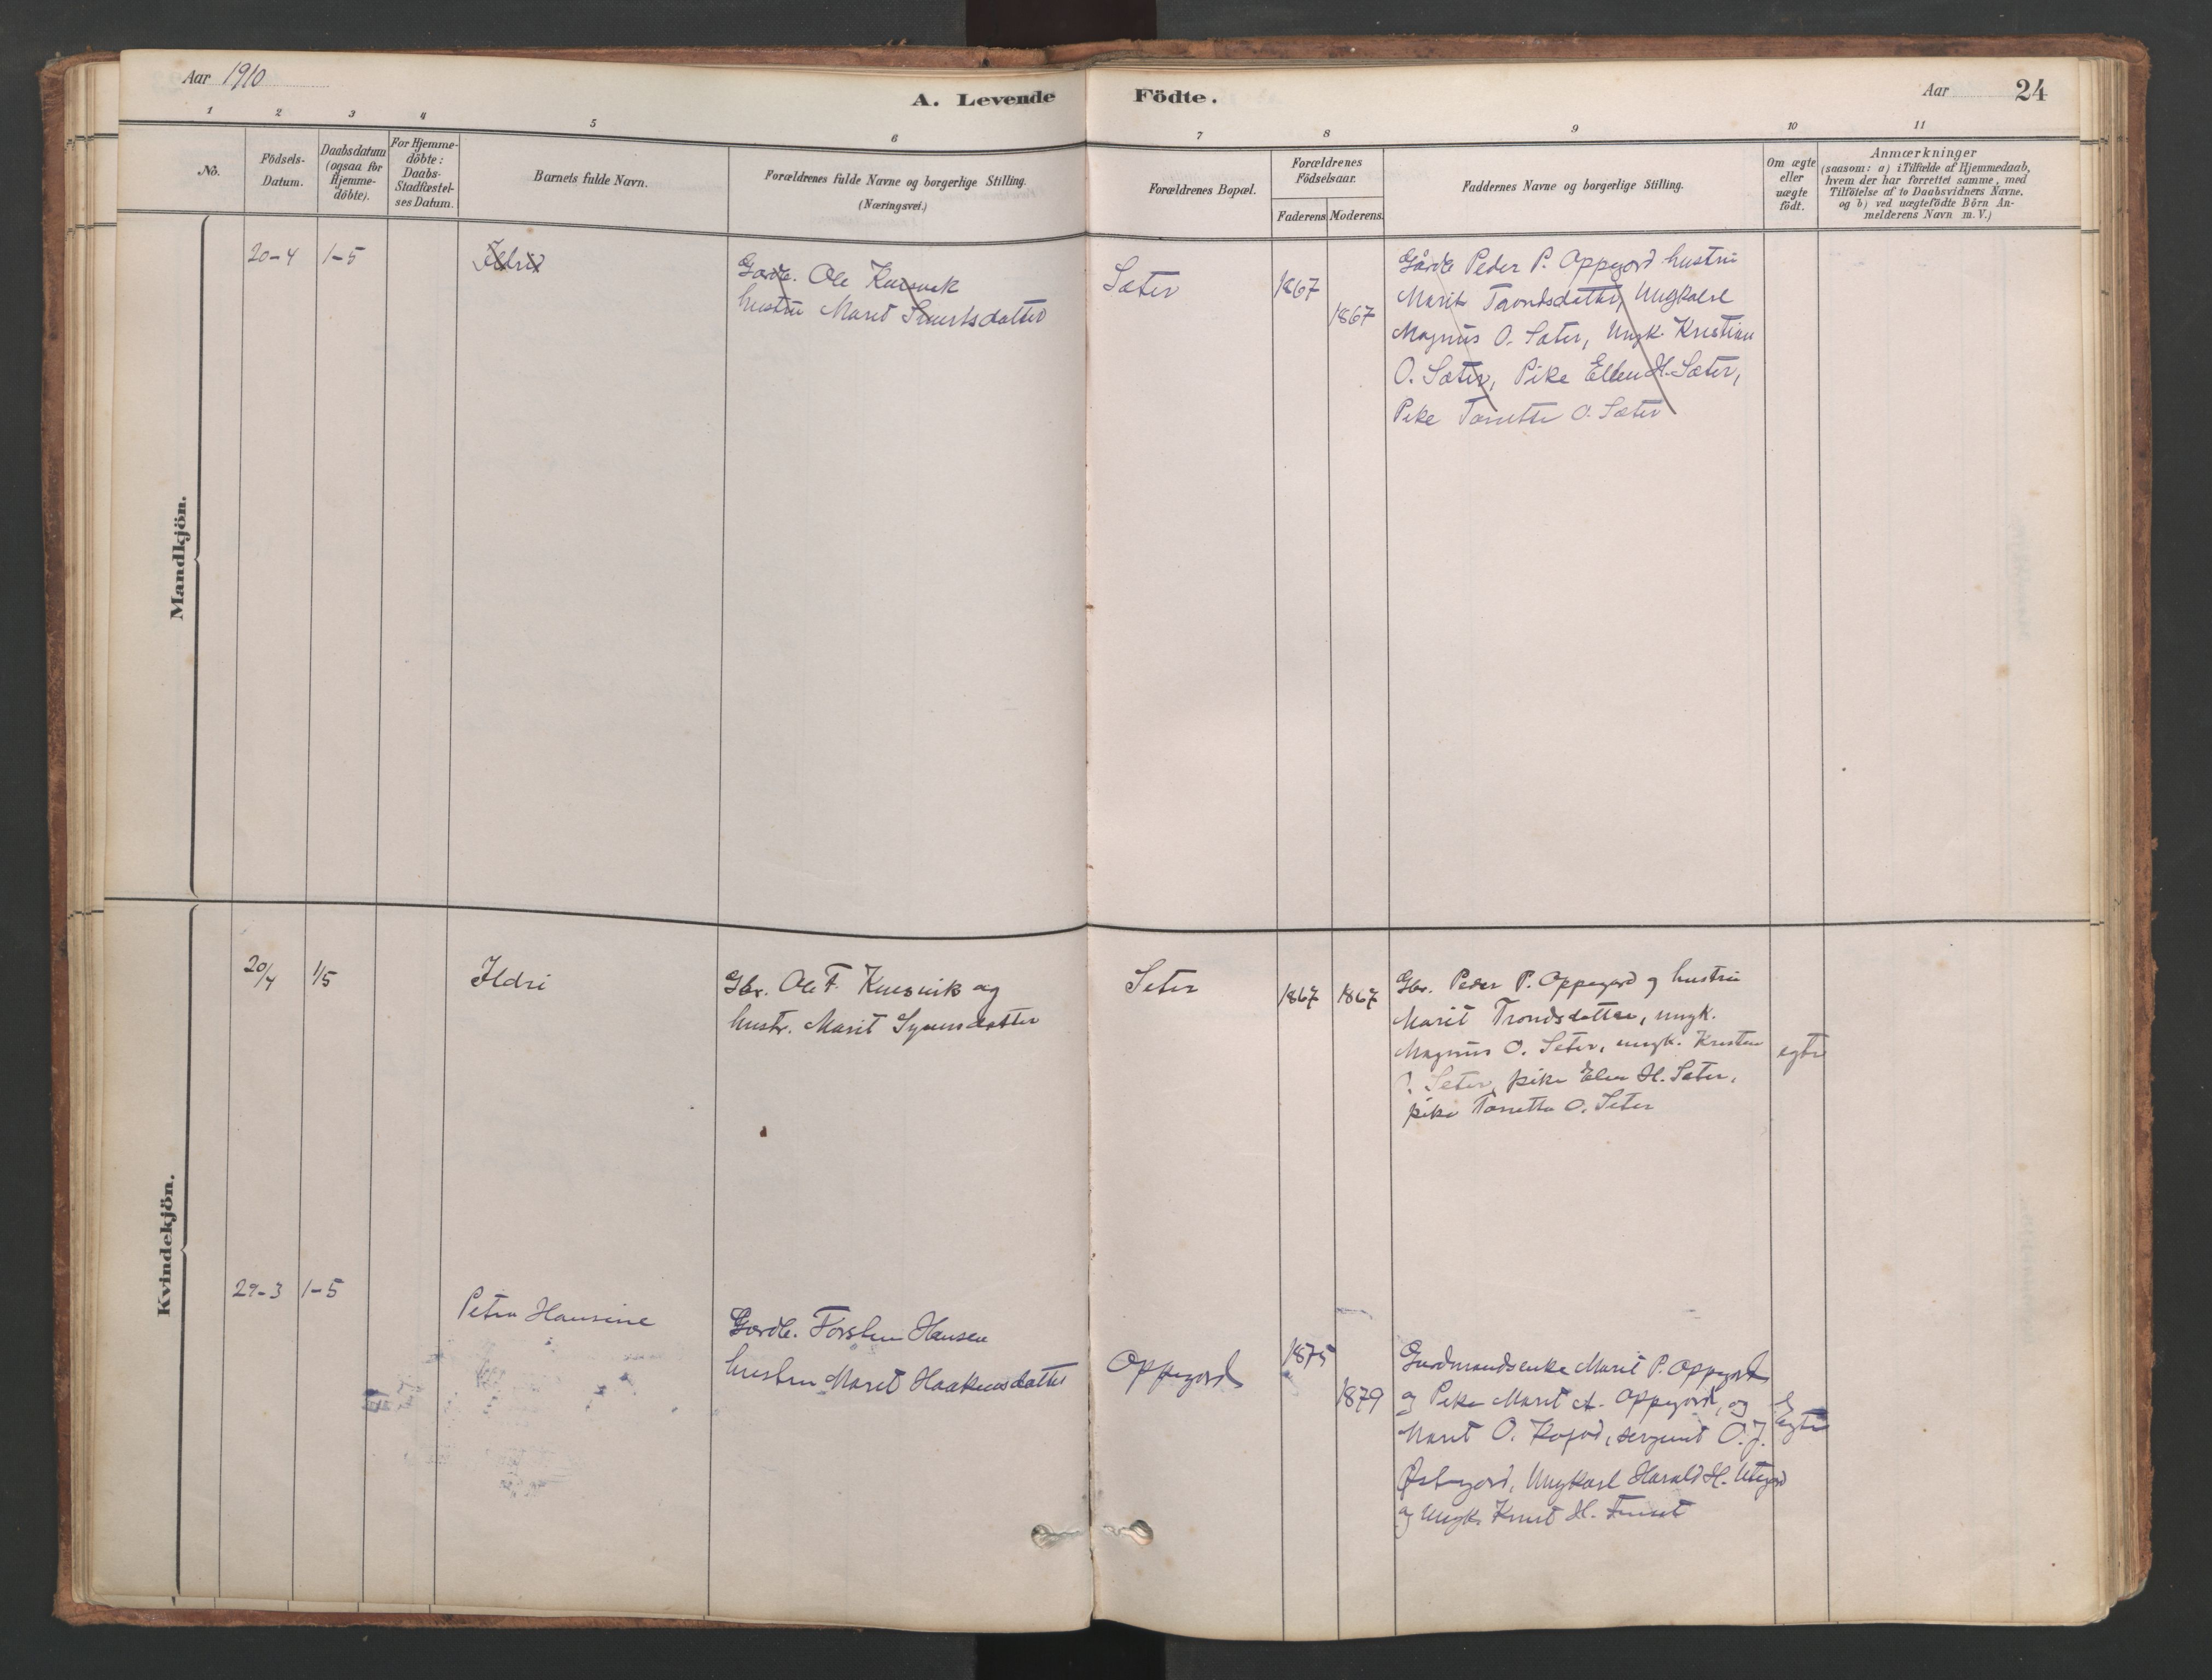 Aar 1910
A. Levende Födte.
Aar 24
1 2 3 4 5 6 7 8 9 10 11
No.
Födsels-
Datum.
Daabsdatum
(ogsaa for
Hjemme-
döbte).
For Hjemme-
döbte:
Daabs-
Stadfæstel-
ses Datum.
Barnets fulde Navn.
Forældrenes fulde Navne og borgerlige Stilling.
(Næringsvei.)
Forældrenes Bopæl.
Forældrenes
Födselsaar.
Faderens. Moderens.
Faddernes Navne og borgerlige Stilling.
Om ægte
eller
uægte
födt.
Anmærkninger
(saasom: a) i Tilfælde af Hjemmedaab,
hvem der har forrettet samme, med
Tilföielse af to Daabsvidners Navne.
og b) ved uægtefödte Börn An-
melderens Navn m. V.)
Mandkjön.
20-4 1-5
Ildrid
Gardb. Ole
hustru Marit
Sæter
1867
1867
Gårdb Peder P. Oppegord hustru
Marit Trondsdatter, Ungkarl
Magnus O. Sæter, Ungk. Kristian
O. Sæter, Pike Ellen H. Sæter,
Pike O. Sæter
Kvindekjön.
20/4 1/5
Ildri
Gbr. Ole F. og
hustr. Marit
Seter
1867 1867
Gbr. Peder P. Oppegord og hustru
Marit Trondsdatter, ungk.
Magnus O. Seter, ungk. Kristen
O. Seter, pike Elen H. Seter,
pike O. Seter
egte
29-3 1-5
Petra Hansine
Gardb. Torsten Hansen
hustru Maret Haakensdatter
Oppegord
1875
1879
Gardmandsenke Marit P. Oppegord
og Pike Marit A. Oppegord, og
Marit O. sergent O. J.
Ungkarl Harald H.
og Ungk. Knut H.
Egte